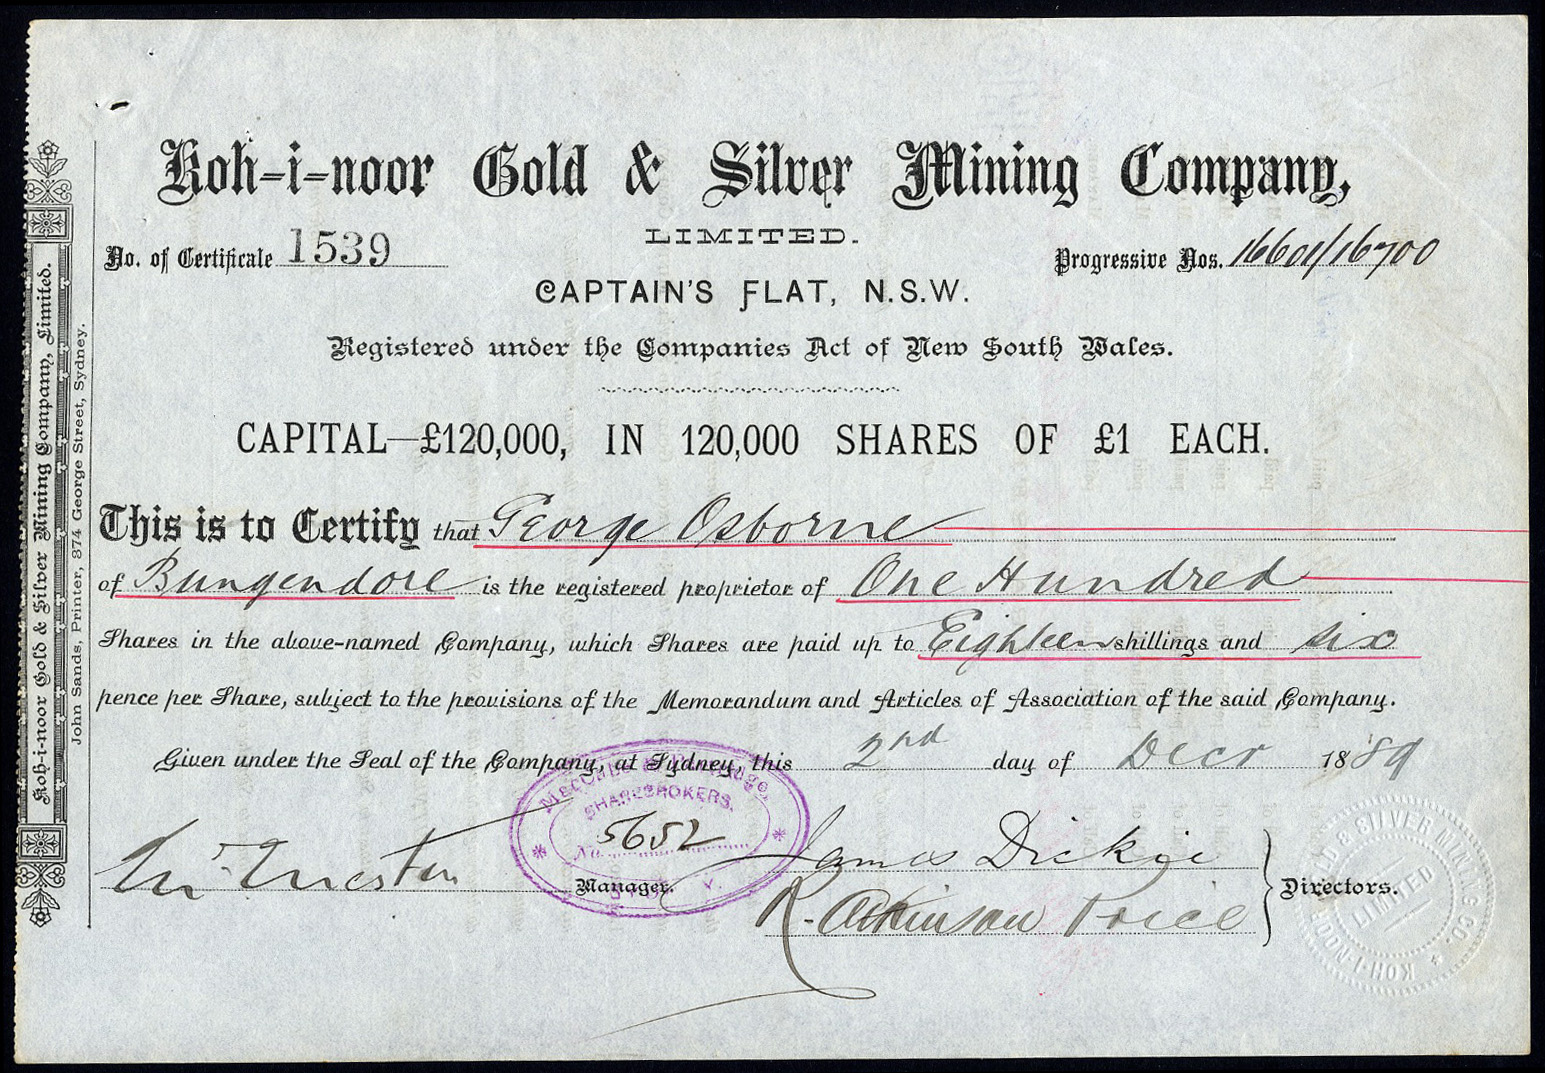 Koh-i-noor Gold & Silver Mining Company,
LIMITED.
No. of Certificate 1539
Progressive Nos. 16601/16700
CAPTAIN'S FLAT, N.S.W.
Registered under the Companies Act of New South Wales.
CAPITAL—£120,000, IN 120,000 SHARES OF £1 EACH.
This is to Certify that George Osborne
of Bungendore is the registered proprietor of One Hundred
Shares in the above-named Company, which Shares are paid up to Eighteen shillings and six
pence per Share, subject to the provisions of the Memorandum and Articles of Association of the said Company.
Given under the Seal of the Company, at Sydney, this 2nd day of Decr 1889
SHAREBROKERS.
No. 5652
Manager.
James Dickie
R. Atkinson Price
Directors.
KOH-I-NOOR GOLD & SILVER MINING CO.
LIMITED
Koh-i-noor Gold & Silver Mining Company, Limited.
John Sands, Printer, 374 George Street, Sydney.